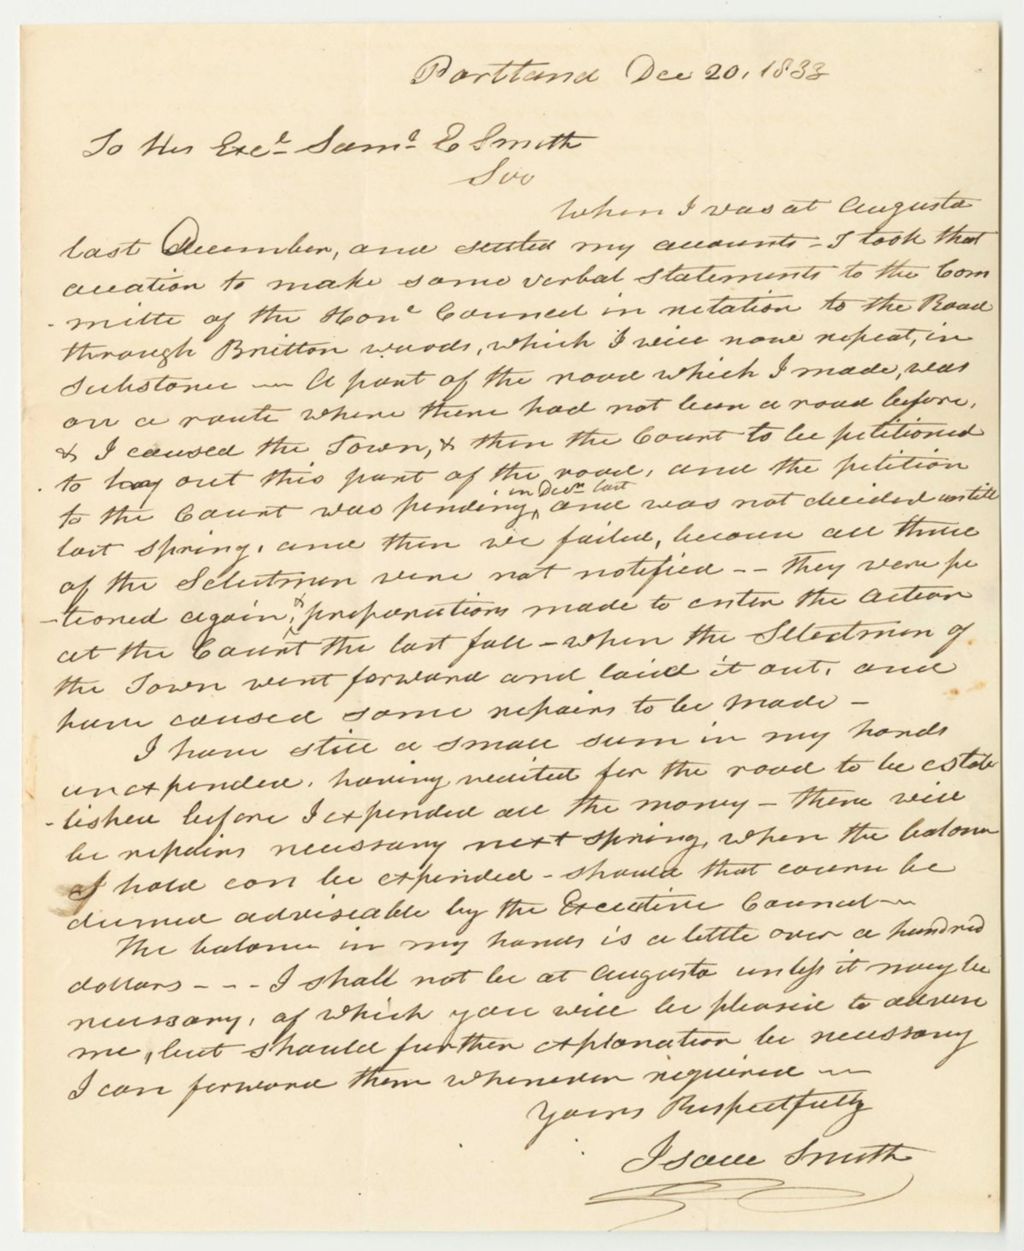 Portland Dec 20, 1833
To His Exc.l Sam.l E Smith
Sir
When I was at Augusta
last December, and settled my accounts - I took that
occation to make some verbal statements to the Com
- mitte of the Hon.l Council in relation to the Road
through Britton woods, which I will now repeat, in
substance — A part of the road which I made, was
on a route where there had not been a road before,
& I caused the Town, & then the Court to be petitioned
to lay out this part of the road, and the petition
to the Court was pending in Decr last, and was not decided untill
last spring, and then we failed, because all three
of the Selectmen were not notified -- they were pe
-tioned again, & preparations made to enter the action
at the Court the last fall - when the Selectmen of
the Town went forward and laid it out, and
have caused some repairs to be made -
I have still a small sum in my hands
unexpended, having waited for the road to be estab
- lished before I expended all the money - there will
be repairs necessary next spring, when the balance
I hold can be expended - should that course be
deemed adviseable by the Excutive Council —
The balance in my hands is a little over a hundred
dollars - - - I shall not be at Augusta unless it may be
necessary, of which you will be pleased to advise
me, but should further explanation be necessary
I can forward them whenever required —
Yours Respectfully
Isaac Smith